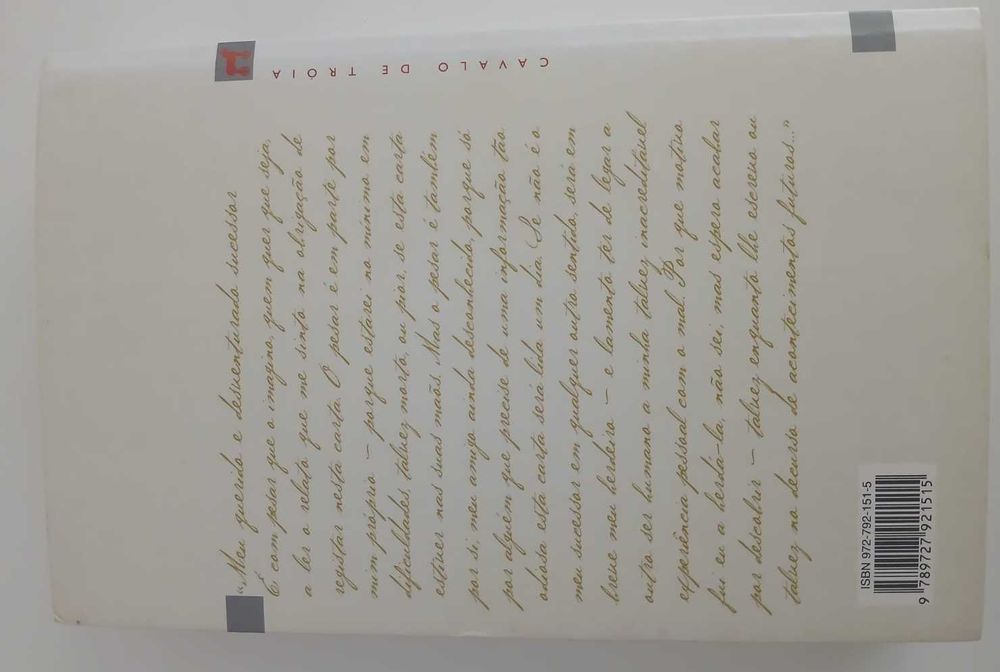 «Meu querido e desventurado sucessor
É com pesar que o imagino, quem quer que seja,
a ler o relato que me sinto na obrigação de
registar nesta carta. O pesar é em parte por
mim próprio — porque estarei no mínimo em
dificuldades, talvez morto, ou pior, se esta carta
estiver nas suas mãos. Mas o pesar é também
por si, meu amigo ainda desconhecido, porque só
por alguém que precise de uma informação tão
odiosa esta carta será lida um dia. Se não é o
meu sucessor em qualquer outro sentido, será em
breve meu herdeiro — e lamento ter de legar a
outro ser humano a minha talvez inacreditável
experiência pessoal com o mal. Por que motivo
fui eu a herdá-la, não sei, mas espero acabar
por descobrir — talvez enquanto lhe escrevo ou
talvez no decurso de acontecimentos futuros...»
CAVALO DE TRÓIA
ISBN 972-792-151-5
9 789727 921515